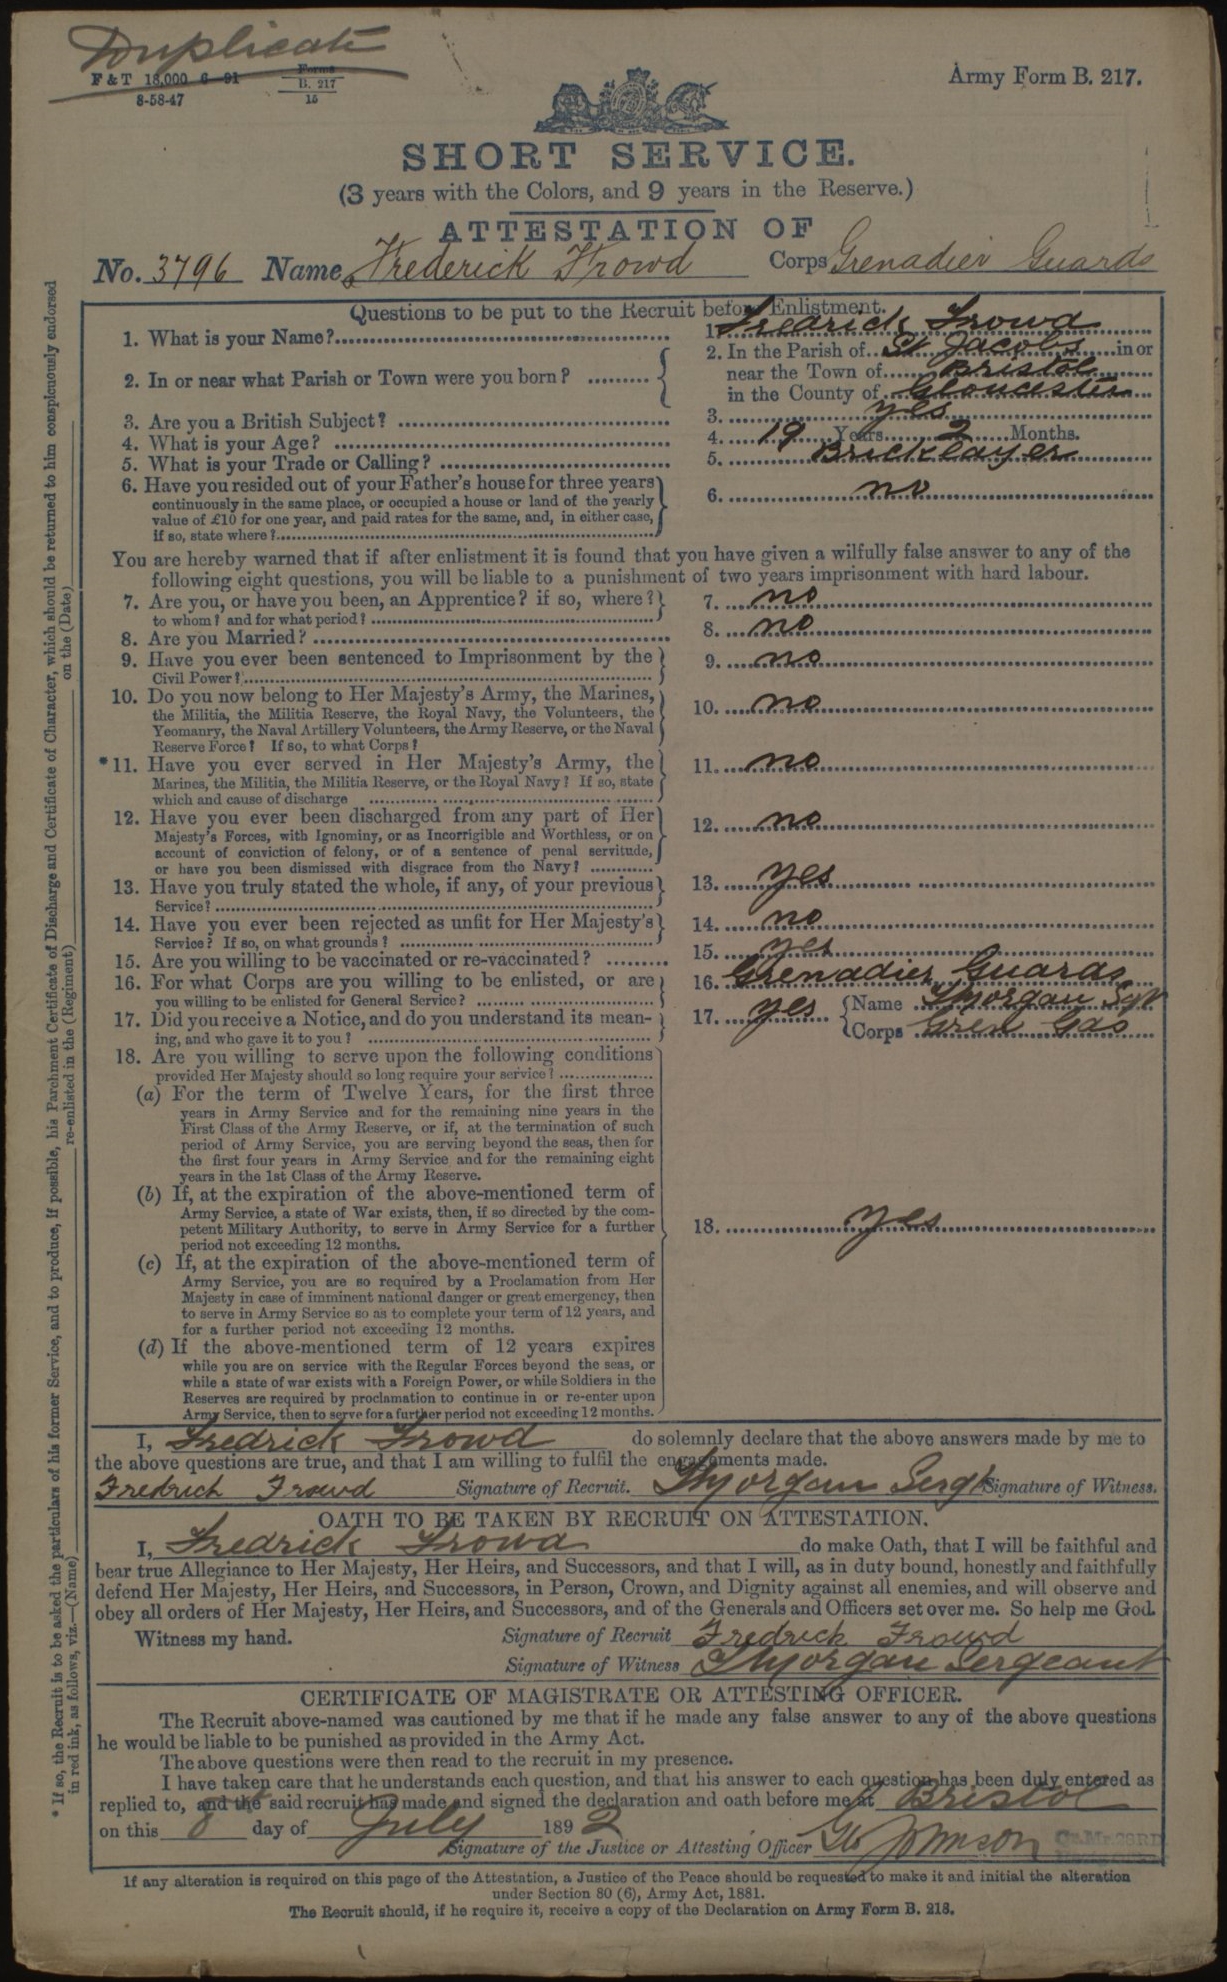 Duplicate
F & T 18,000 6—91 Forms
B. 217
8-58-47 15
Army Form B. 217.
SHORT SERVICE.
(3 years with the Colors, and 9 years in the Reserve.)
ATTESTATION OF
No. 3796 Name Frederick Frowd Corps Grenadier Guards
Questions to be put to the Recruit before Enlistment.
1. What is your Name? 1. Fredrick Frowd
2. In or near what Parish or Town were you born? 2. In the Parish of St Jacobs in or
near the Town of Bristol
in the County of Gloucester
3. Are you a British Subject? 3. yes
4. What is your Age? 4. 19 Years 2 Months.
5. What is your Trade or Calling? 5. Bricklayer
6. Have you resided out of your Father's house for three years
continuously in the same place, or occupied a house or land of the yearly
value of £10 for one year, and paid rates for the same, and, in either case,
if so, state where? 6. no
You are hereby warned that if after enlistment it is found that you have given a wilfully false answer to any of the
following eight questions, you will be liable to a punishment of two years imprisonment with hard labour.
7. Are you, or have you been, an Apprentice? if so, where?
to whom? and for what period? 7. no
8. Are you Married? 8. no
9. Have you ever been sentenced to Imprisonment by the
Civil Power? 9. no
10. Do you now belong to Her Majesty's Army, the Marines,
the Militia, the Militia Reserve, the Royal Navy, the Volunteers, the
Yeomanry, the Naval Artillery Volunteers, the Army Reserve, or the Naval
Reserve Force? If so, to what Corps? 10. no
*11. Have you ever served in Her Majesty's Army, the
Marines, the Militia, the Militia Reserve, or the Royal Navy? If so, state
which and cause of discharge 11. no
12. Have you ever been discharged from any part of Her
Majesty's Forces, with Ignominy, or as Incorrigible and Worthless, or on
account of conviction of felony, or of a sentence of penal servitude,
or have you been dismissed with disgrace from the Navy? 12. no
13. Have you truly stated the whole, if any, of your previous
Service? 13. yes
14. Have you ever been rejected as unfit for Her Majesty's
Service? If so, on what grounds? 14. no
15. Are you willing to be vaccinated or re-vaccinated? 15. yes
16. For what Corps are you willing to be enlisted, or are
you willing to be enlisted for General Service? 16. Grenadier Guards
17. Did you receive a Notice, and do you understand its mean-
ing, and who gave it to you? 17. yes Name Morgan Sgt
Corps Gren Gds
18. Are you willing to serve upon the following conditions
provided Her Majesty should so long require your service?
(a) For the term of Twelve Years, for the first three
years in Army Service and for the remaining nine years in the
First Class of the Army Reserve, or if, at the termination of such
period of Army Service, you are serving beyond the seas, then for
the first four years in Army Service and for the remaining eight
years in the 1st Class of the Army Reserve.
(b) If, at the expiration of the above-mentioned term of
Army Service, a state of War exists, then, if so directed by the com-
petent Military Authority, to serve in Army Service for a further
period not exceeding 12 months.
18. yes
(c) If, at the expiration of the above-mentioned term of
Army Service, you are so required by a Proclamation from Her
Majesty in case of imminent national danger or great emergency, then
to serve in Army Service so as to complete your term of 12 years, and
for a further period not exceeding 12 months.
(d) If the above-mentioned term of 12 years expires
while you are on service with the Regular Forces beyond the seas, or
while a state of war exists with a Foreign Power, or while Soldiers in the
Reserves are required by proclamation to continue in or re-enter upon
Army Service, then to serve for a further period not exceeding 12 months.
I, Fredrick Frowd do solemnly declare that the above answers made by me to
the above questions are true, and that I am willing to fulfil the engagements made.
Fredrich Frowd Signature of Recruit. Morgan Sergt Signature of Witness.
OATH TO BE TAKEN BY RECRUIT ON ATTESTATION.
I, Fredrick Frowd do make Oath, that I will be faithful and
bear true Allegiance to Her Majesty, Her Heirs, and Successors, and that I will, as in duty bound, honestly and faithfully
defend Her Majesty, Her Heirs, and Successors, in Person, Crown, and Dignity against all enemies, and will observe and
obey all orders of Her Majesty, Her Heirs, and Successors, and of the Generals and Officers set over me. So help me God.
Witness my hand. Signature of Recruit Fredrick Frowd
Signature of Witness Morgan Sergeant
CERTIFICATE OF MAGISTRATE OR ATTESTING OFFICER.
The Recruit above-named was cautioned by me that if he made any false answer to any of the above questions
he would be liable to be punished as provided in the Army Act.
The above questions were then read to the recruit in my presence.
I have taken care that he understands each question, and that his answer to each question has been duly entered as
replied to, and the said recruit has made and signed the declaration and oath before me at Bristol
on this 8 day of July 1892
Signature of the Justice or Attesting Officer Johnson
If any alteration is required on this page of the Attestation, a Justice of the Peace should be requested to make it and initial the alteration
under Section 80 (6), Army Act, 1881.
The Recruit should, if he require it, receive a copy of the Declaration on Army Form B. 218.
* If so, the Recruit is to be asked the particulars of his former Service, and to produce, if possible, his Parchment Certificate of Discharge and Certificate of Character, which should be returned to him conspicuously endorsed
in red ink, as follows, viz.—(Name) re-enlisted in the (Regiment) on the (Date)